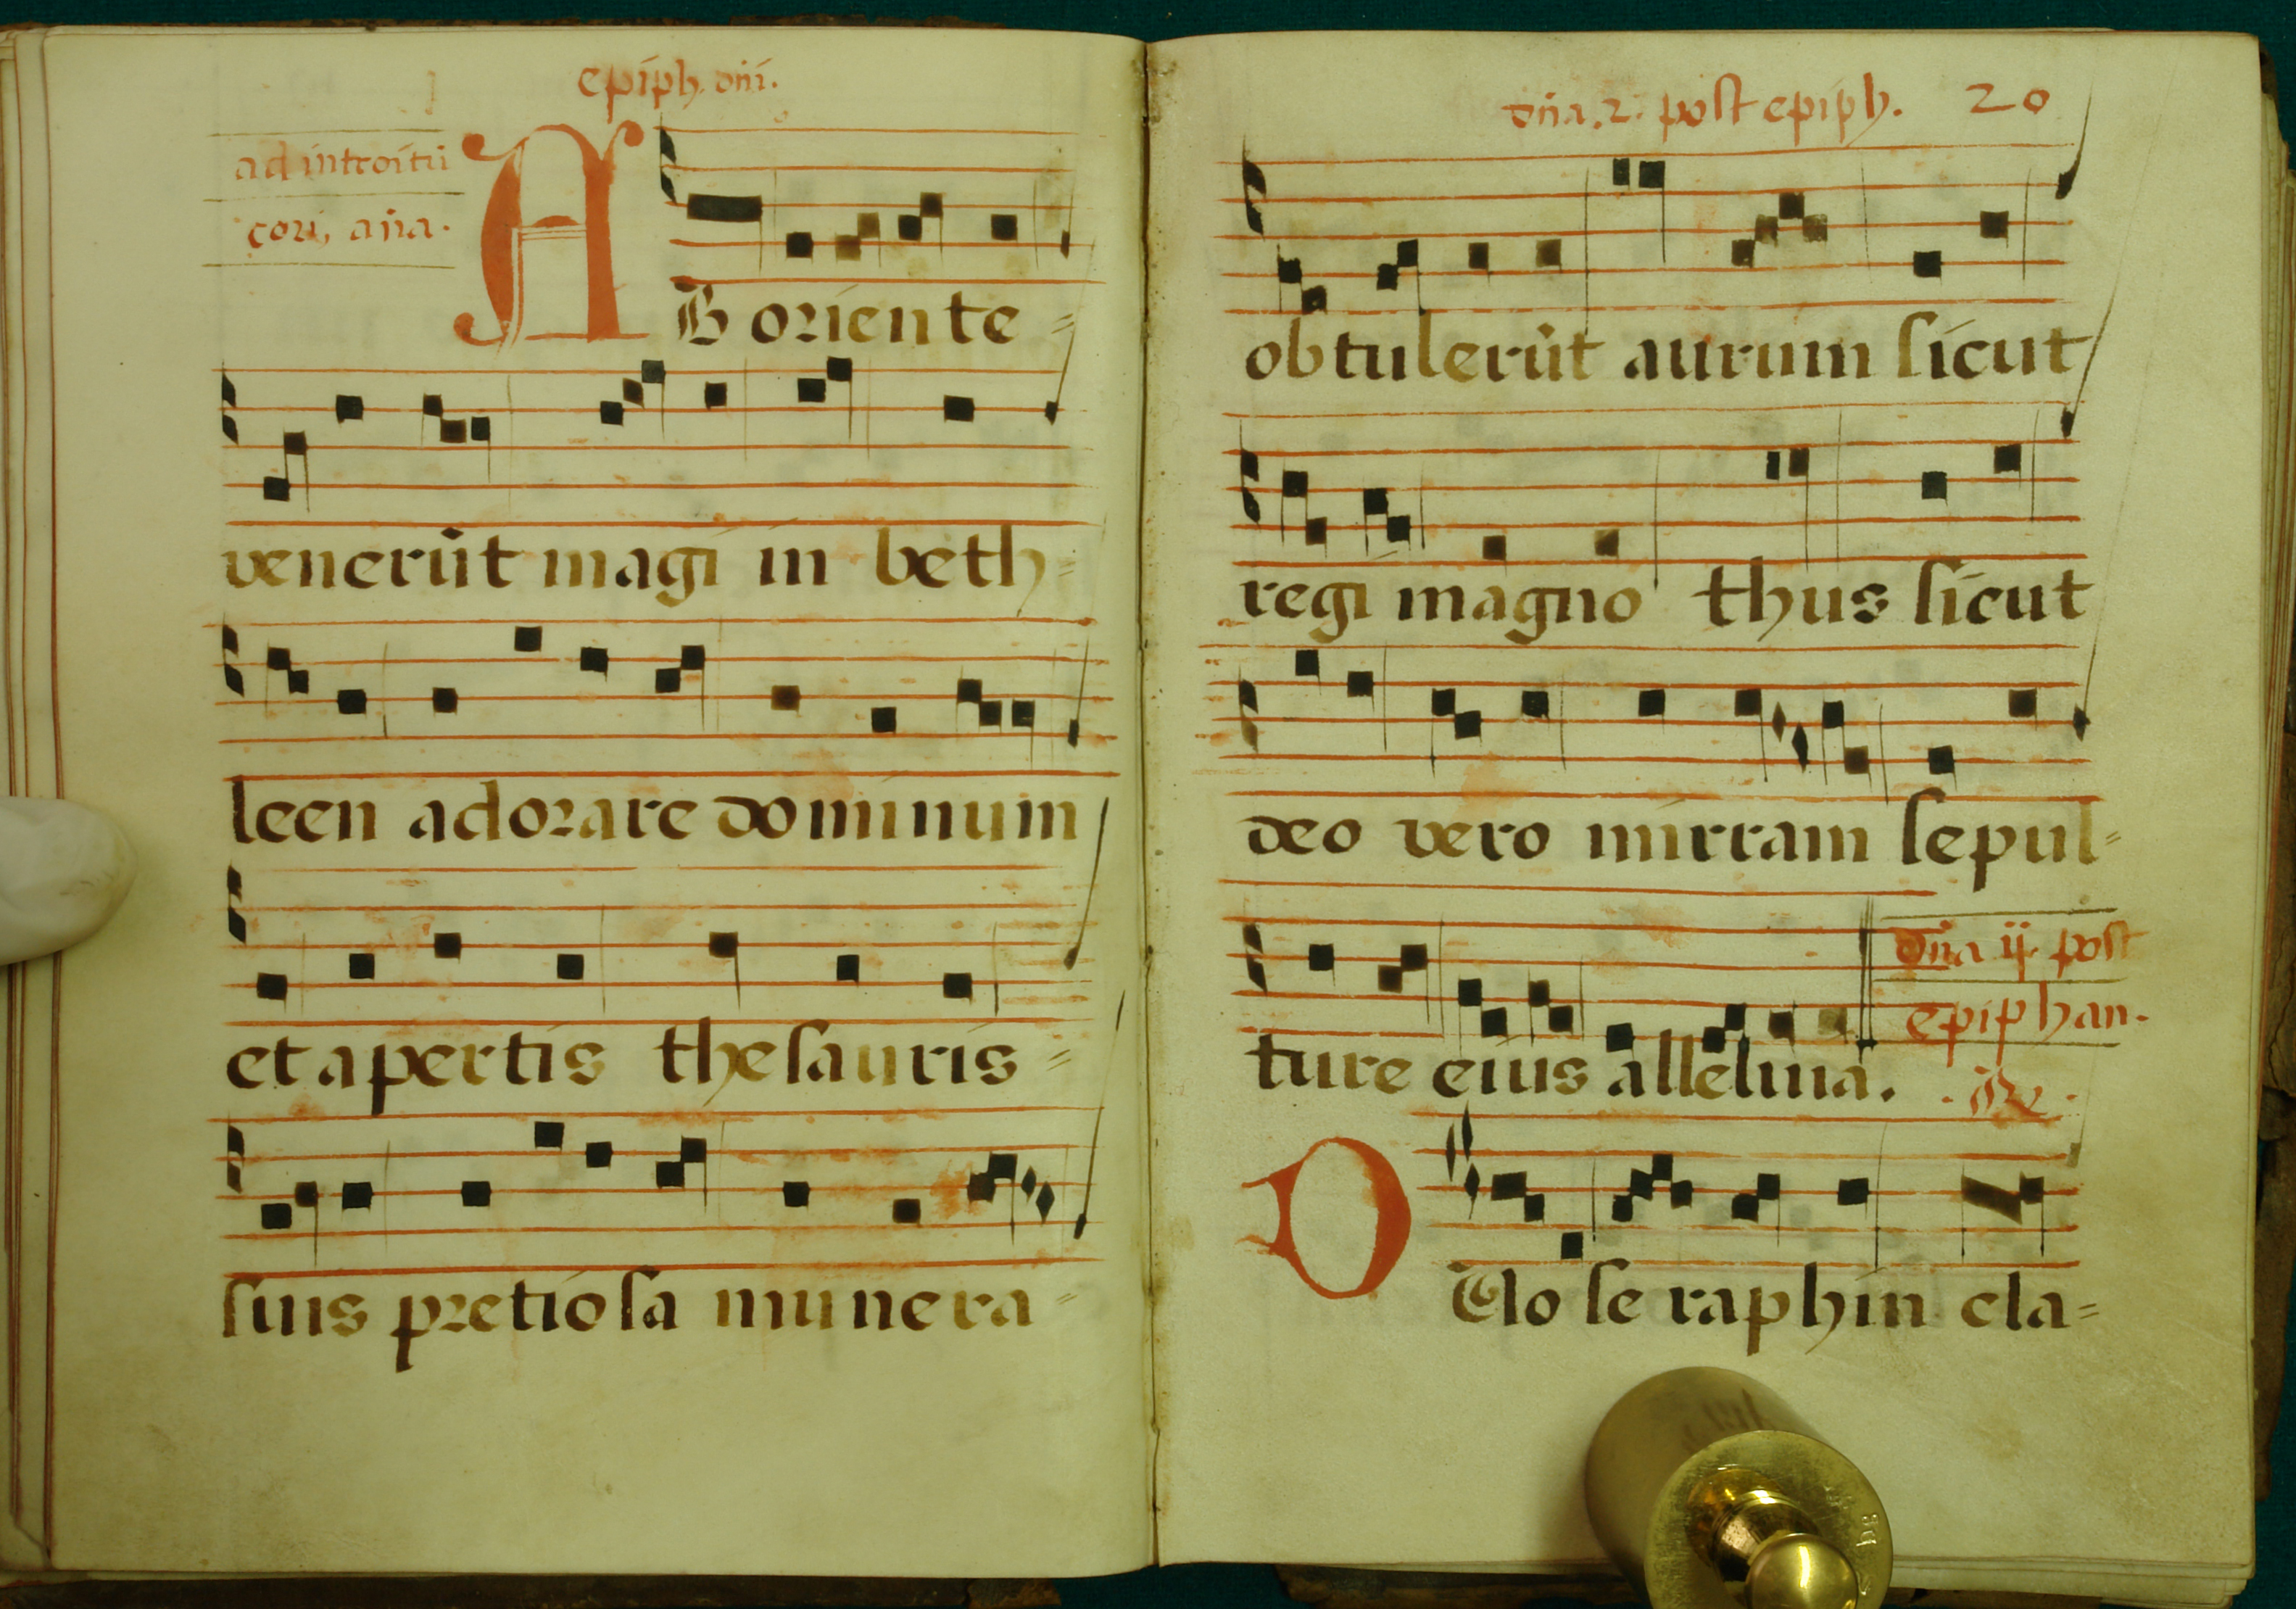 epiph. dñi.
ad introitū
cori, aña.
AB oriente=
venerūt magi in beth=
leen adorare dominum
et apertis thesauris=
suis pretiosa munera=
dña. 2. post epiph. 20
obtulerūt aurum sicut
regi magno thus sicut
deo vero mirram sepul=
ture eius alleluia.
dña ij. post
epiphan.
DUo seraphin cla=